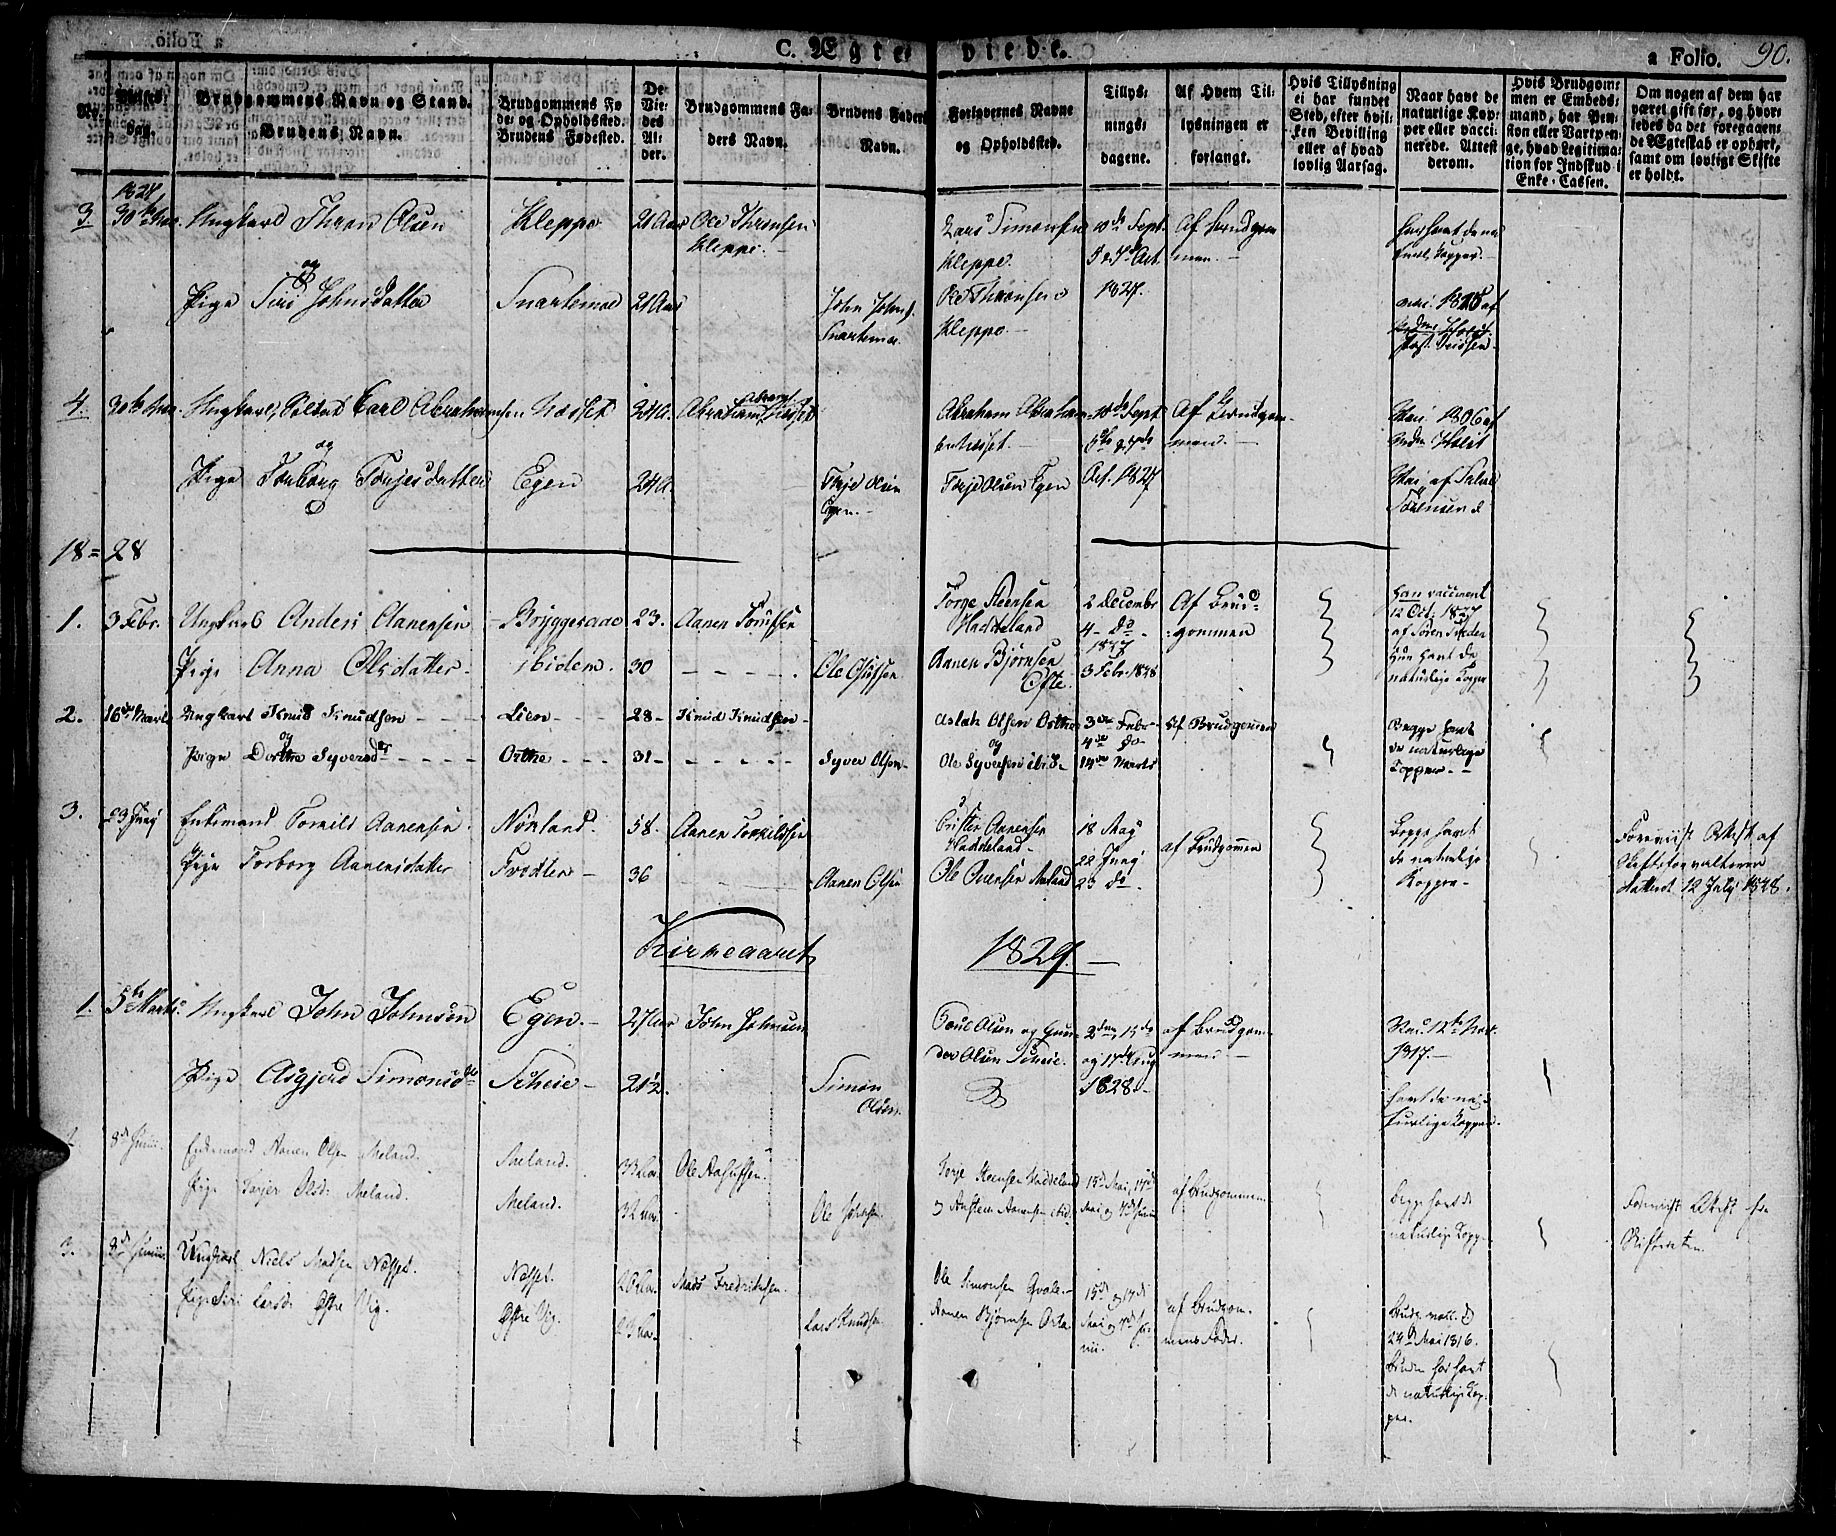 C. Ægteviede.
a Folio. 90.
No.
Vielses-Dag.
Brudgommens Navn og Stand.
Brudens Navn.
Brudgommens Fødested og Opholdssted.
Brudens Fødested.
De Viedes Alder.
Brudgommens Faders Navn.
Brudens Faders Navn.
Forlovernes Navne og Opholdssted.
Tillysningsdagene.
Af Hvem Tillysningen er forlangt.
Hvis Tillysning ei har fundet Sted, efter hvilken Bevilling eller af hvad lovlig Aarsag.
Naar havt de naturlige Kopper eller vaccinerede. Attest derom.
Hvis Brudgommen er Embedsmand, har Pension eller Vartpenge, hvad Legitimation for Indskud i Enke-Cassen.
Om nogen af dem har været gift før, og hvorledes da det foregaaende Ægteskab er ophørt, samt om lovligt Skifte er holdt.
1827
3 30te Ungkarl Thron Olsen Kleppe 21 Aar Ole Thronsen Kleppe. Lars Simonsen Kleppe. 10de Sept. 5 & 7de Oct. 1827. Af Brudgommen.
og
Pige Siri Johnsdatter Snartemoe 21 Aar John Johns. Snartemoe. Ole Thronsen Kleppe
4. 30te Ungkarl, Soldat Carl Abrahamsen Nœsset 24 A. Abraham Abrahams. Nœsset Abraham Abrahamsen Nœsset. 10de Sept. 5te & 7de Oct. 1827 Af Brudgommen. 1806 af
og
Pige Torborg Torjesdatter Egen 24 A. Torje Olsen Egen. Torje Olsen Egen
18=28
1. 3 Febr. Ungkarl Anders Aanensen Bryggesaae 23. Aanen Tomsen Torge Steensen Haddeland 2 Decembr 4 - Do - 1827 3 Febr. 1828 Af Brudgommen Han vaccineret 12 Oct. 1827 af Søren
Pige Anna Olsdatter ibidem. 30 Ole Olufsen Aanen Bjørnsen Ofte. Hun havt de naturlige Kopper
2. 16de Marts Ungkarl Knud Knudsen Lien 28 Knud Knudsen Aslak Olsen Ortne 3de Febr. 4de do 14de Marts Af Brudgommen Begge havt de naturlige Kopper
og
Pige Dorthe Syversdtr Ortne 31 Syver Olsen Ole Syversen ibid
3. 23 Junj Enkemand Tormild Aanensen Nørland. 58. Aanen Tormildsen Christen Aanensen Haddeland 18 Maj 22 Junj 23 do af Brudgommen Begge havt de naturlige Kopper Foreviist Attest af Skifteforvalteren datteret 12 July 1828.
Pige Torborg Aanensdatter Trodten 36 Aanen Olsen Ole Evensen Meland
Kirkeaaret 1829.
1. 5te Marts Ungkarl John Johnson Egen 27 Aar John Johnsen Poul Olsen og Gunder Olsen Scheie. 2den, 15de og 17de Aug 1828. af Brudgommen 12te Nov. 1817.
Pige Asgjerd Simonsd. Scheie 21½. Simon Olsen havt de naturlige Kopper.
2. 8de Junii. Enkemand Aanen Olsen Meland. Meland. 33 Aar. Ole Aasulfsen. Torje Steensen Haddeland 15de Mai, 17de Mai og 7de Junii af Brudgommen Begge havt de naturlige Kopper Foreviist Attest fra Skifteretten.
Pige Torjer Olsd. Meland. Meland. 32 Aar. Ole Johnsen. og Austen Aanensen ibid.
3. 8de Junii. Ungkarl Niels Madsen Nesset. Nesset. 20 Aar. Mads Fredriksen. Ole Simonsen Qvale. 15de og 17de Mai og 7de Junii. af Brudgommens Fader. Brudg. vacc. d. 24de Mai 1816.
Pige Siri Larsd. Østre Vig. Østre Vig. 23 Aar. Lars Knudsen. Aanen Bjørnsen Bruden har havt de naturlige Kopper.